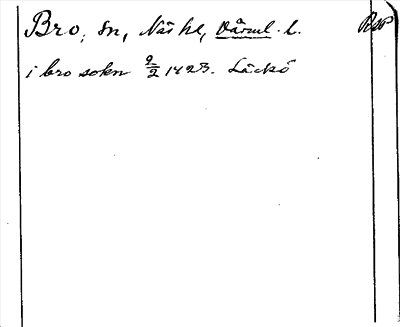 Bro, sn, Näs hd, Värml. l. Bro
i bro sokn 9/2 1423. Läckö